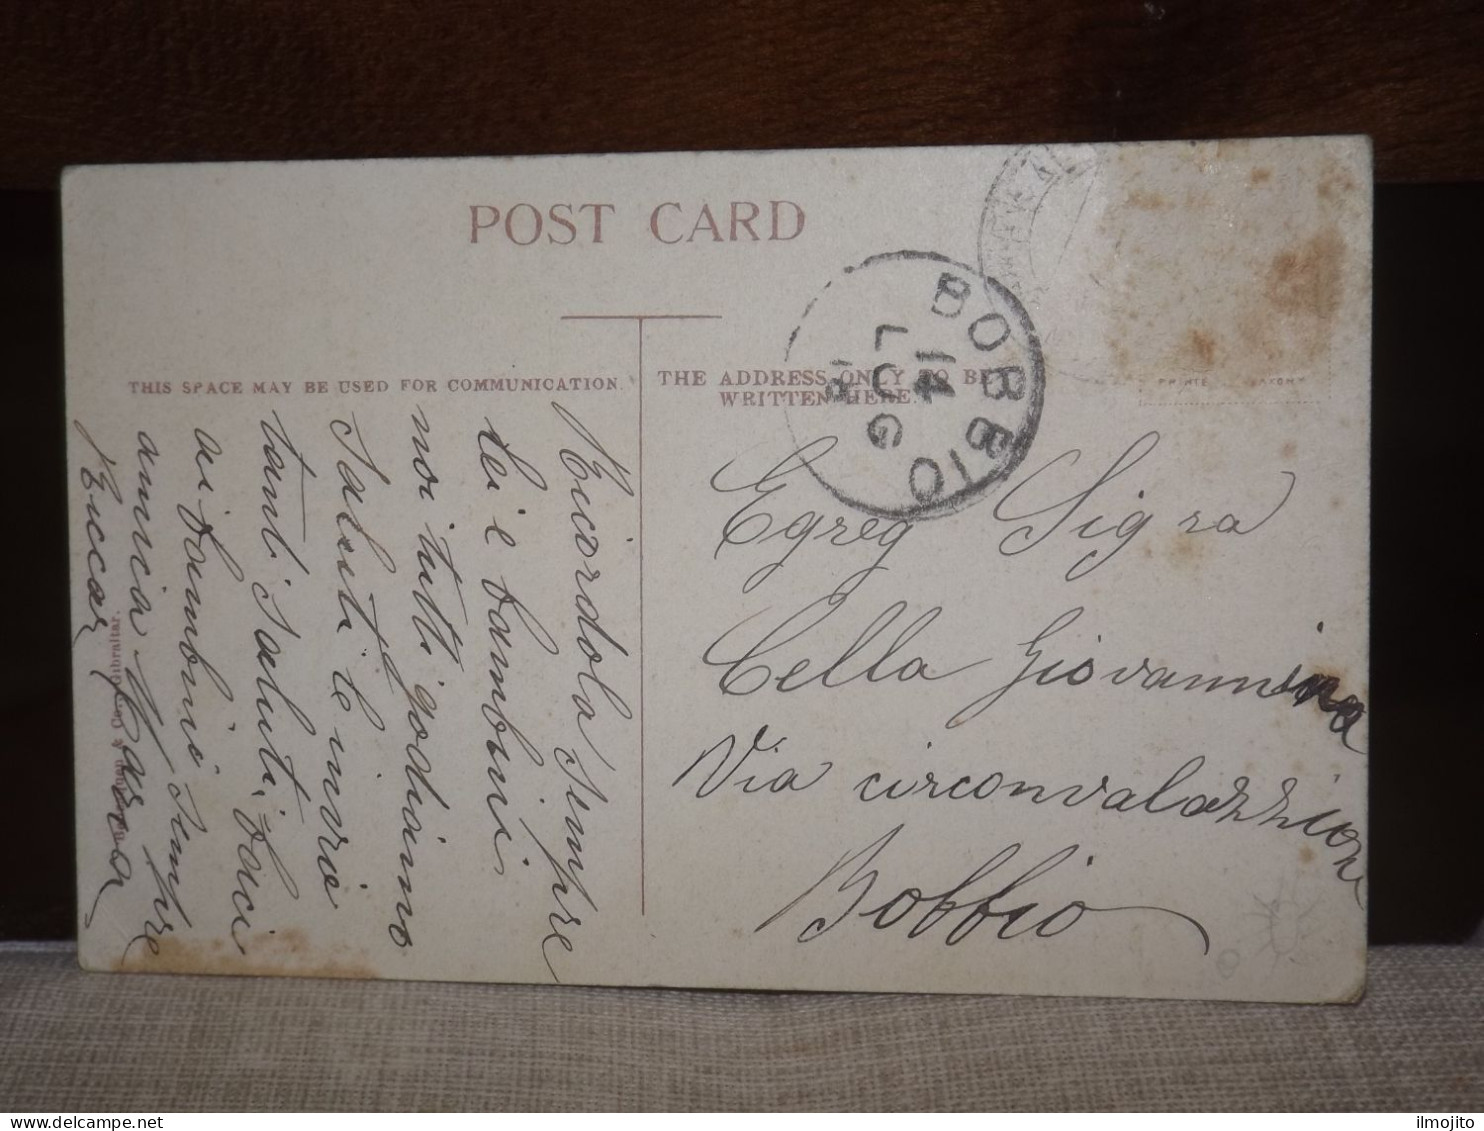 POST CARD
THIS SPACE MAY BE USED FOR COMMUNICATION.
THE ADDRESS ONLY TO BE
WRITTEN HERE.
BOBBIO
14
LUG
Ricordola Sempre
lei e bambini
noi tutti godiamo
Salute le invio
tanti Saluti, baci
ai bambini Sempre
amica Marca
& Co., Gibraltar.
Egreg Sigra
Cella Giovannina
Via circonvalazzione
Bobbio
ilmojito